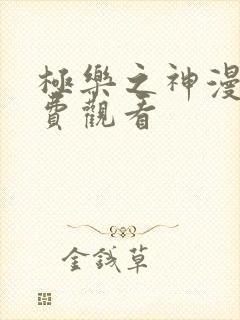 極樂之神漫
費觀看
金錢草